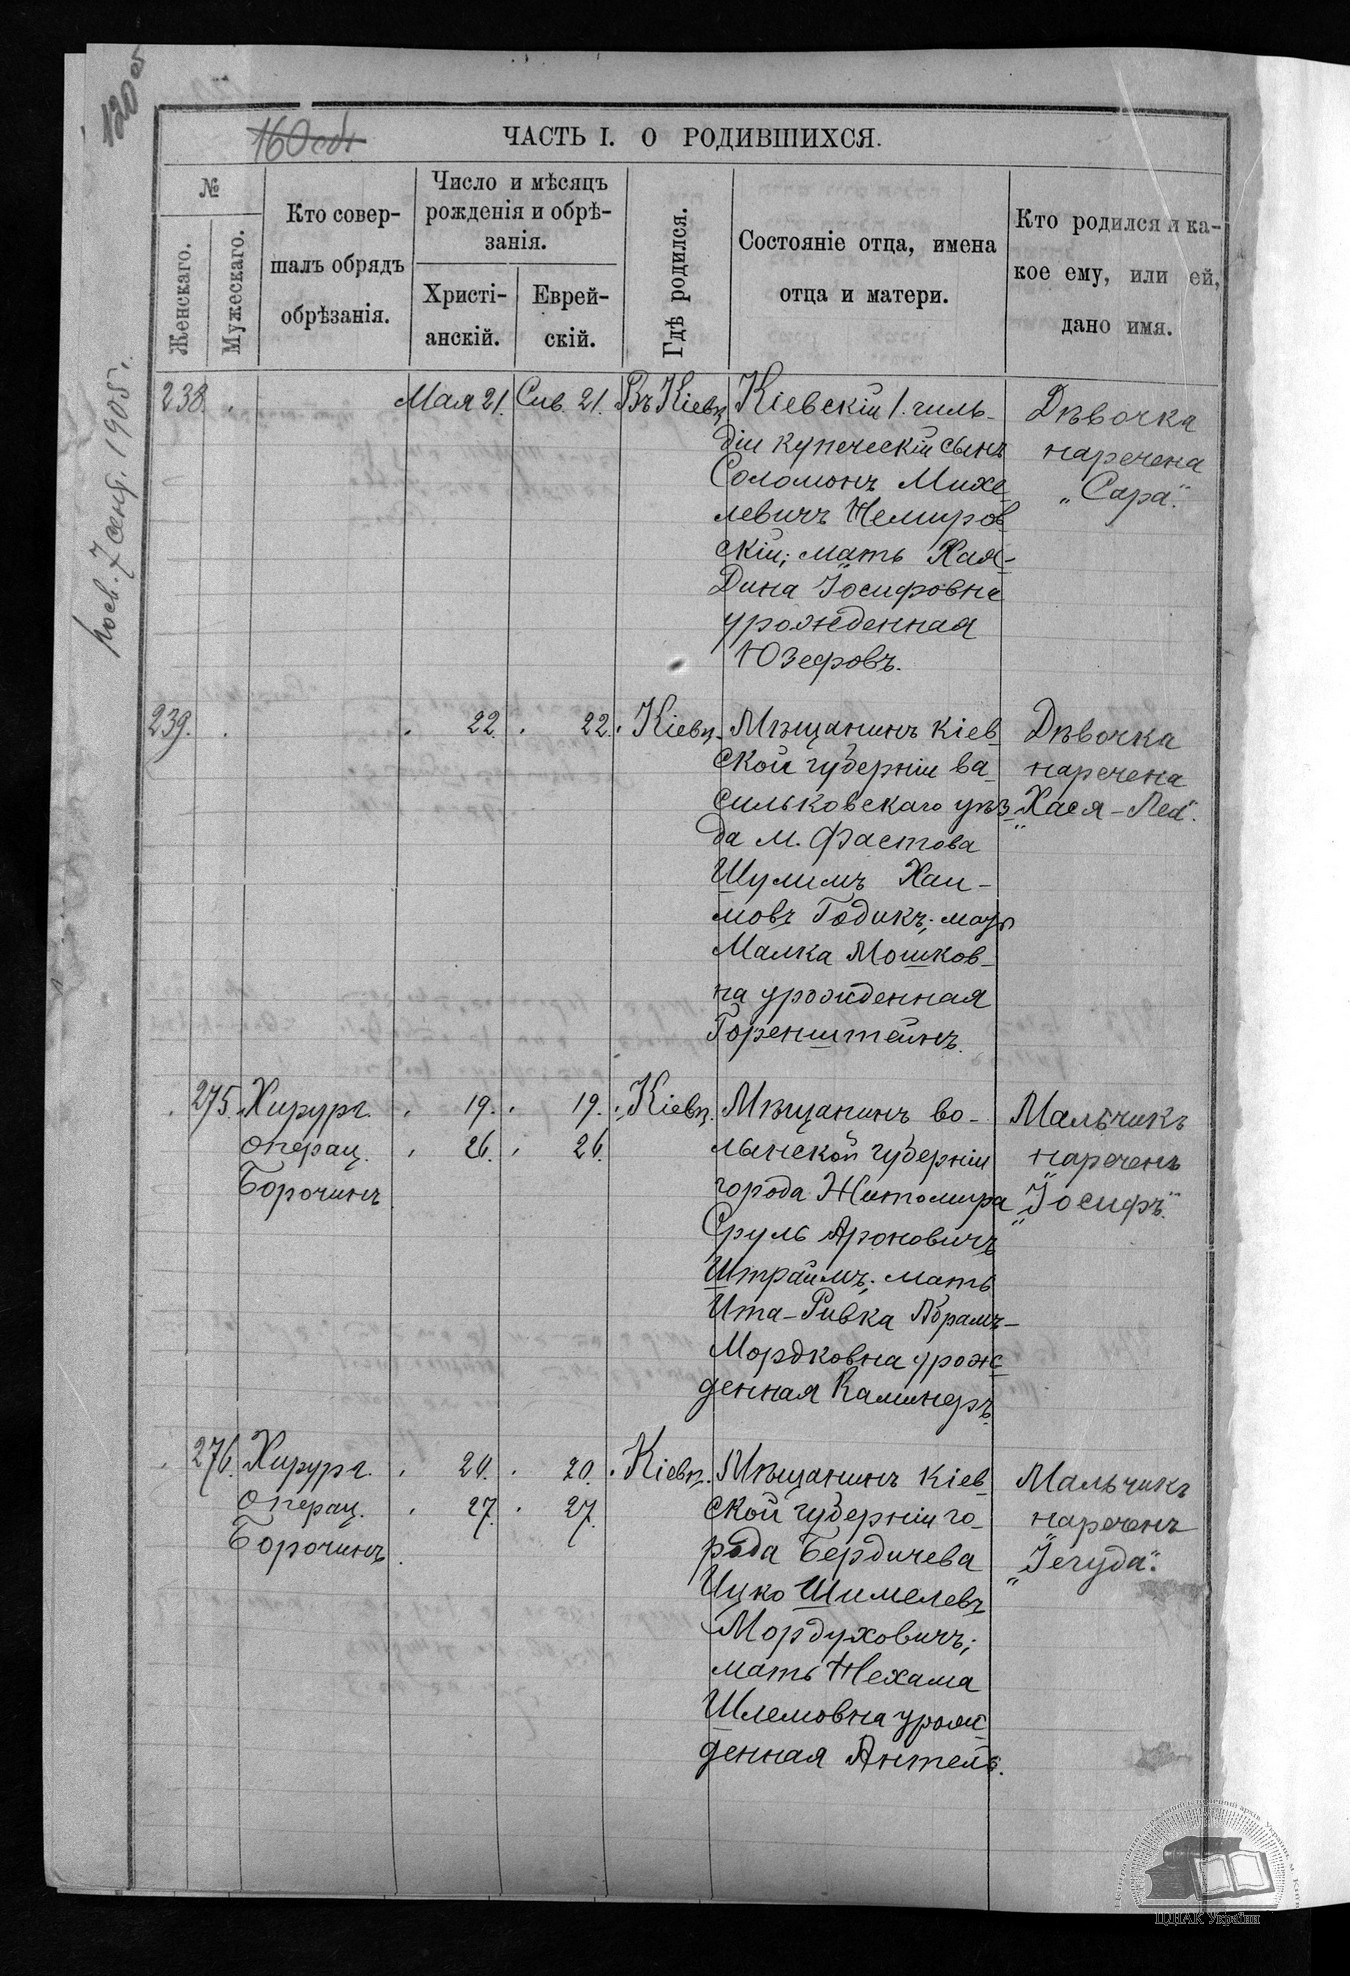 120 об
160 об.
ЧАСТЬ I. О РОДИВШИХСЯ.
№
Женскаго.
Мужескаго.
Кто совер-
шалъ обрядъ
обрѣзанія.
Число и мѣсяцъ
рожденія и обрѣ-
занія.
Христі-
анскій.
Еврей-
скій.
Гдѣ родился.
Состояніе отца, имена
отца и матери.
Кто родился и ка-
кое ему, или ей,
дано имя.
7 сент. 1905 г.
238. Мая 21. Сив. 21. Въ Кіевѣ
Кіевскій 1. гиль-
діи купеческій сынъ
Соломонъ Михе-
левичъ Немиров-
скій; мать Хая-
Дина Іосифовна
урожденная
Юзефовъ.
Дѣвочка
наречена
„Сара".
239. 22. 22. Кіевѣ.
Мѣщанинъ кіев-
ской губерніи ва-
сильковскаго уѣз-
да м. Фастова
Шулимъ Хаи-
мовъ Годикъ; мать
Малка Мошков-
на урожденная
Горенштейнъ.
Дѣвочка
наречена
„Хася-Леа".
275. Хирург. 19. 19. Кіевѣ.
операц. 26. 26.
Борочинъ
Мѣщанинъ во-
лынской губерніи
города Житомира
Сруль Ароновичъ
Штраймъ; мать
Ита-Ривка Абрамъ-
Мордковна урож-
денная Каминеръ.
Мальчикъ
нареченъ
„Іосифъ".
276. Хирург. 20. 20. Кіевѣ.
операц. 27. 27.
Борочинъ.
Мѣщанинъ кіев-
ской губерніи го-
рода Бердичева
Ицко Шимелевъ
Мордуховичъ;
мать Нехама
Шлемовна урож-
денная Антель.
Мальчикъ
нареченъ
„Іегуда".
ЦДІАК України